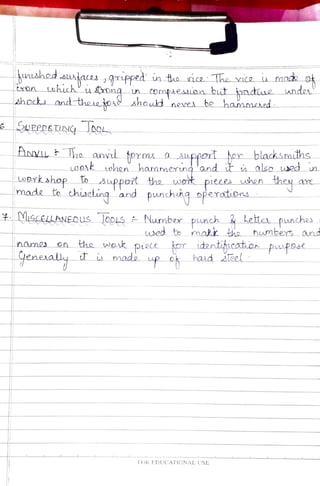 finished surfaces, gripped in the vice. The vice is made of
iron which is strong in compression but fracture under
shocks and therefore should never be hammered.
6 SUPPORTING TOOL
ANVIL :- The anvil forms a support for blacksmiths
work when hammering and it is also used in
workshop to support the work pieces when they are
made to chiseling and punching operations.
7. MISCELLANEOUS TOOLS :- Number punch & letter punches
used to mark the numbers and
names on the work piece for identification purpose.
Generally it is made up of hard steel.
FOR EDUCATIONAL USE